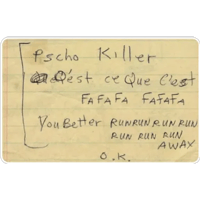 Pscho Killer
Q'est ce Que C'est
FAFAFA FAFAFA
You Better RUN RUN RUN RUN
RUN RUN RUN
AWAX
O.K.